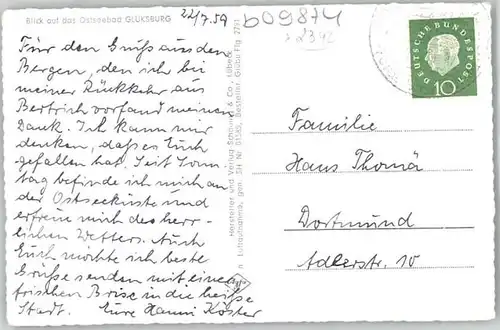 Blick auf das Ostseebad GLÜKSBURG
22/7.59
b09874
Für den Gruß aus den
Bergen, den ich bei
meiner Rückkehr aus
Bertrich vorfand meinen
Dank. Ich kann mir
denken, daß es Euch
gefallen hat. Seit Sonn-
tag befinde ich mich an
der Ostseeküste und
erfreue mich des herr-
lichen Wetters. Auch
Euch möchte ich beste
Grüße senden mit einer
frischen Brise in die heiße
Stadt. Eure Hanni Köster
Hersteller und Verlag Schöning & Co., Lübeck
DEUTSCHE BUNDESPOST
10
Familie
Hans Thomä
Dortmund
Adlerstr. 10